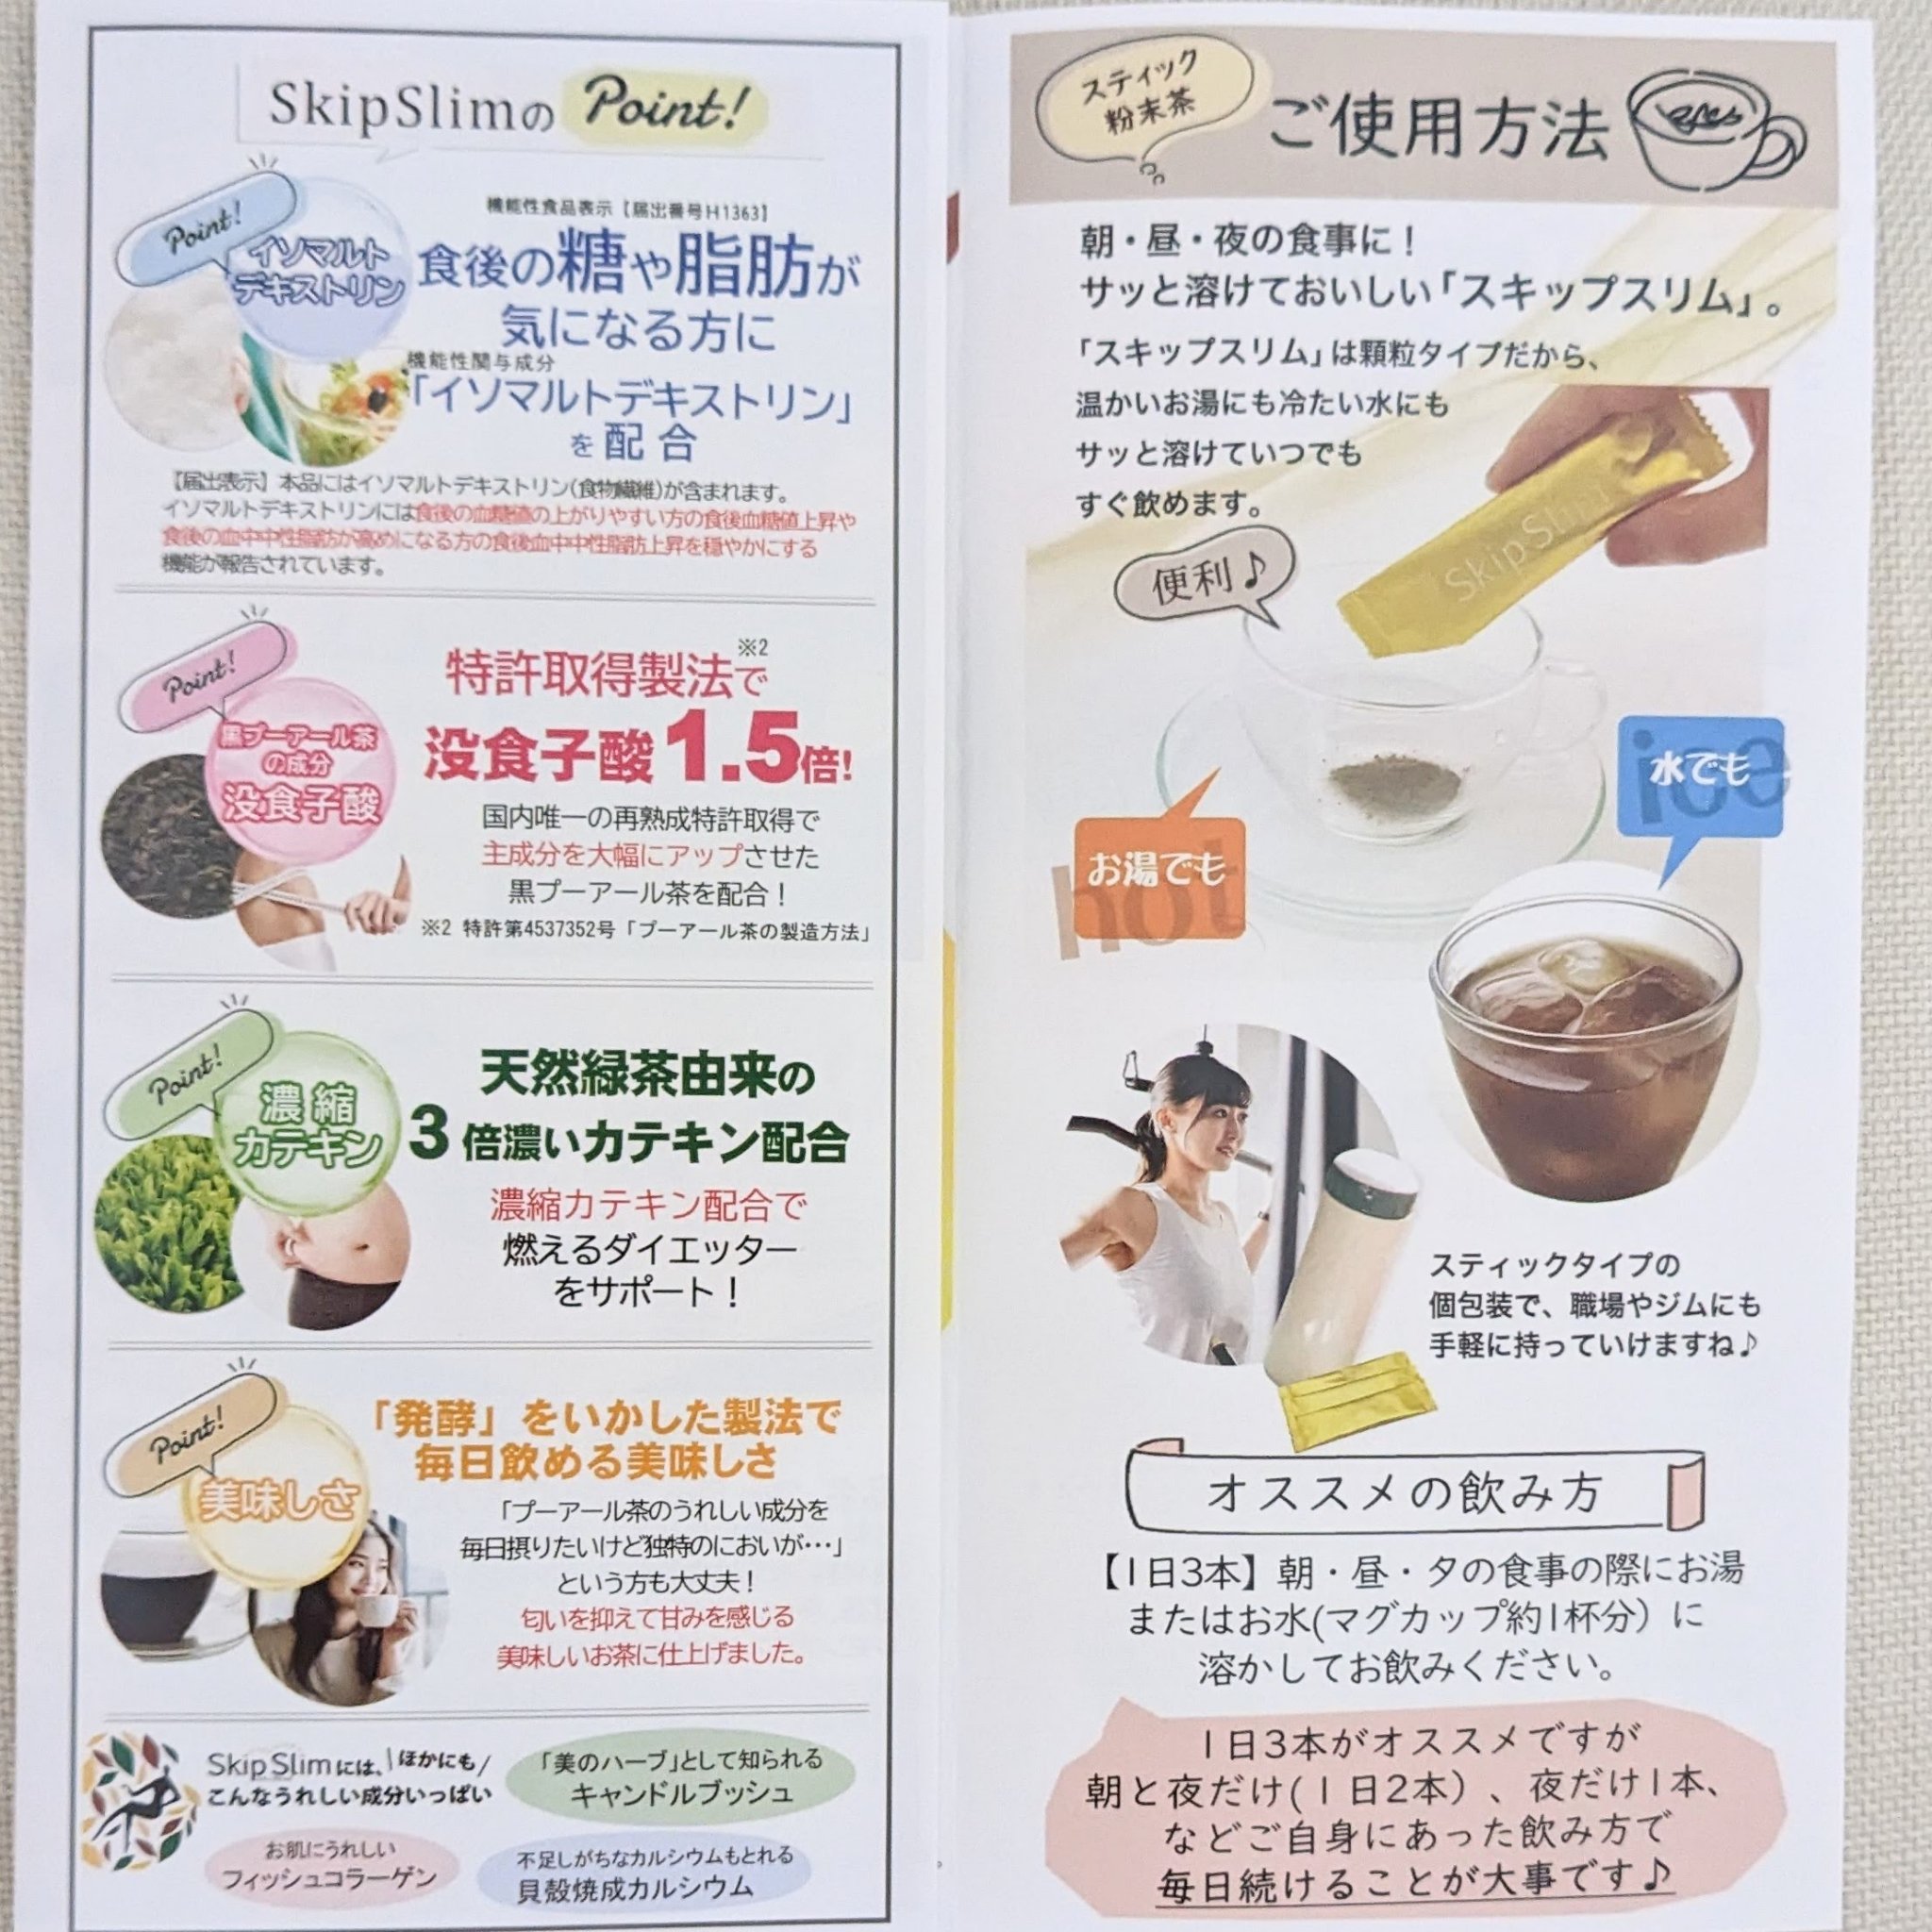 SkipSlimの Point!
Point!
イソマルト
デキストリン
機能性食品表示【届出番号H1363】
食後の糖や脂肪が
気になる方に
機能性関与成分
「イソマルトデキストリン」
を配合
【届出表示】本品にはイソマルトデキストリン(食物繊維)が含まれます。
イソマルトデキストリンには食後の血糖値の上がりやすい方の食後血糖値上昇や
食後の血中中性脂肪が高めになる方の食後血中中性脂肪上昇を穏やかにする
機能が報告されています。
Point!
黒プーアール茶
の成分
没食子酸
特許取得製法で※2
没食子酸1.5倍!
国内唯一の再熟成特許取得で
主成分を大幅にアップさせた
黒プーアール茶を配合！
※2 特許第4537352号「プーアール茶の製造方法」
Point!
濃縮
カテキン
天然緑茶由来の
3倍濃いカテキン配合
濃縮カテキン配合で
燃えるダイエッター
をサポート！
Point!
美味しさ
「発酵」をいかした製法で
毎日飲める美味しさ
「プーアール茶のうれしい成分を
毎日摂りたいけど独特のにおいが…」
という方も大丈夫！
匂いを抑えて甘みを感じる
美味しいお茶に仕上げました。
Skip Slimには、\ほかにも/
こんなうれしい成分いっぱい
「美のハーブ」として知られる
キャンドルブッシュ
お肌にうれしい
フィッシュコラーゲン
不足しがちなカルシウムもとれる
貝殻焼成カルシウム
スティック
粉末茶
ご使用方法
朝・昼・夜の食事に！
サッと溶けておいしい「スキップスリム」。
「スキップスリム」は顆粒タイプだから、
温かいお湯にも冷たい水にも
サッと溶けていつでも
すぐ飲めます。
SkipSlim
便利♪
水でも
ice
お湯でも
hot
スティックタイプの
個包装で、職場やジムにも
手軽に持っていけますね♪
オススメの飲み方
【1日3本】朝・昼・夕の食事の際にお湯
またはお水(マグカップ約1杯分）に
溶かしてお飲みください。
1日3本がオススメですが
朝と夜だけ(1日2本）、夜だけ1本、
などご自身にあった飲み方で
毎日続けることが大事です♪